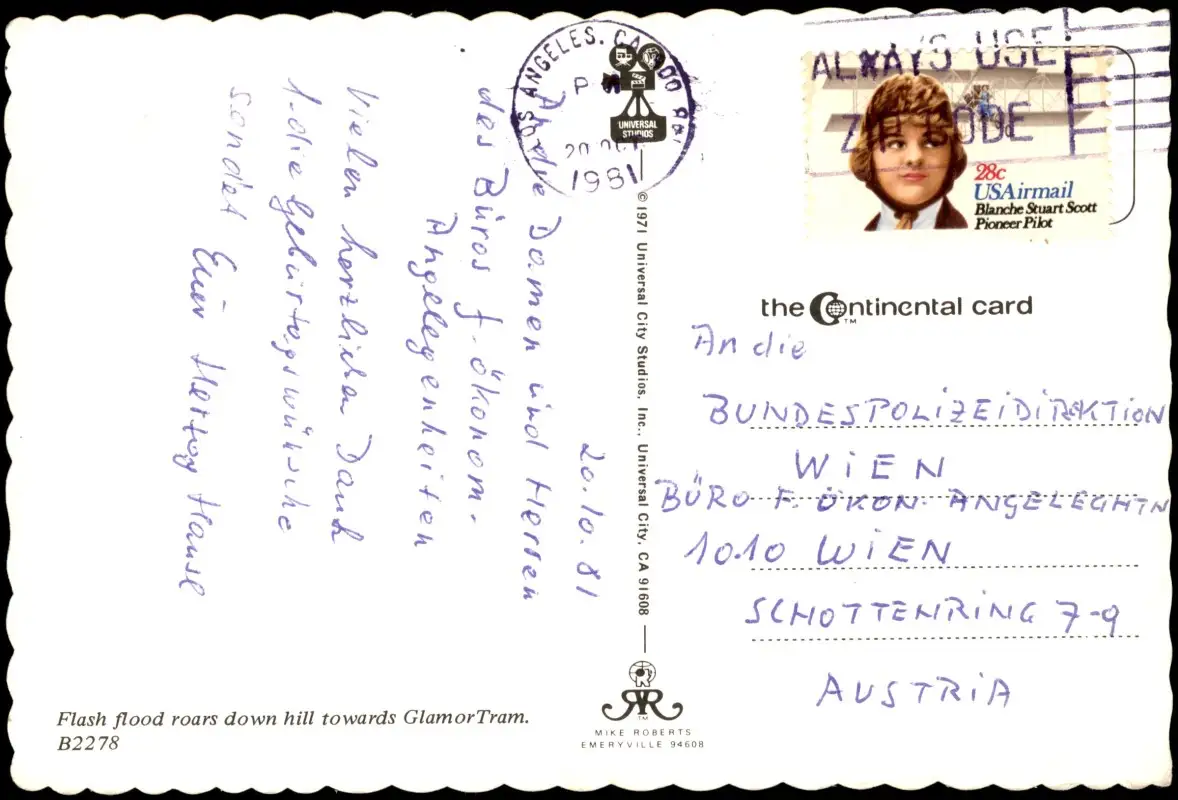 20.10.81
An die Damen und Herren
des Büros f. ökonom.
Angelegenheiten
Vielen herzlichen Dank
f. die Geburtagswünsche
sendet
Euer Herzog Hansl
Flash flood roars down hill towards GlamorTram.
B2278
LOS ANGELES, CA
P
20 OCT
1981
UNIVERSAL
STUDIOS
© 1971 Universal City Studios, Inc., Universal City, CA 91608
TM
MIKE ROBERTS
EMERYVILLE 94608
ALWAYS USE
ZIP CODE
28c
USAirmail
Blanche Stuart Scott
Pioneer Pilot
the Continental card
TM
An die
BUNDESPOLIZEIDIREKTION
WIEN
BÜRO F. ÖKON. ANGELEGHTN
1010 WIEN
SCHOTTENRING 7-9
AUSTRIA